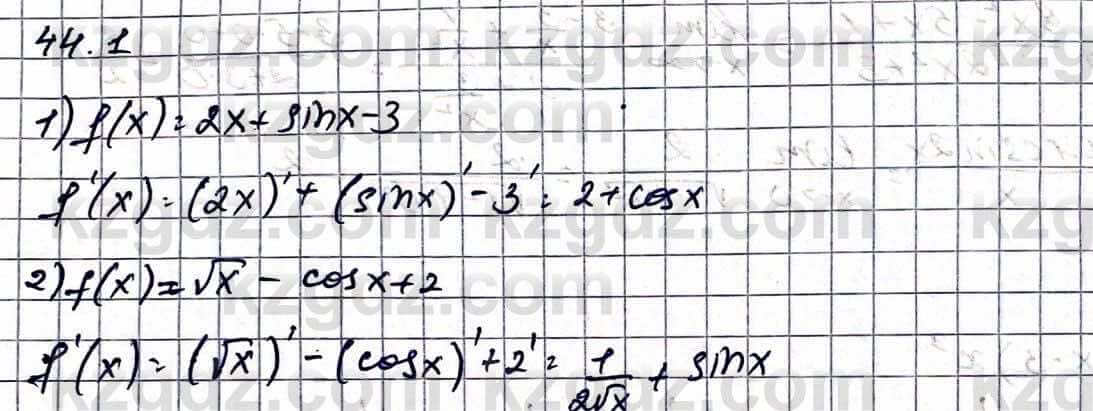 44.1
1) f(x) = 2x + sinx - 3
f'(x) = (2x)' + (sinx)' - 3' = 2 + cosx
2) f(x) = √x - cosx + 2
f'(x) = (√x)' - (cosx)' + 2' = 1/2√x + sinx
kzgdz.com